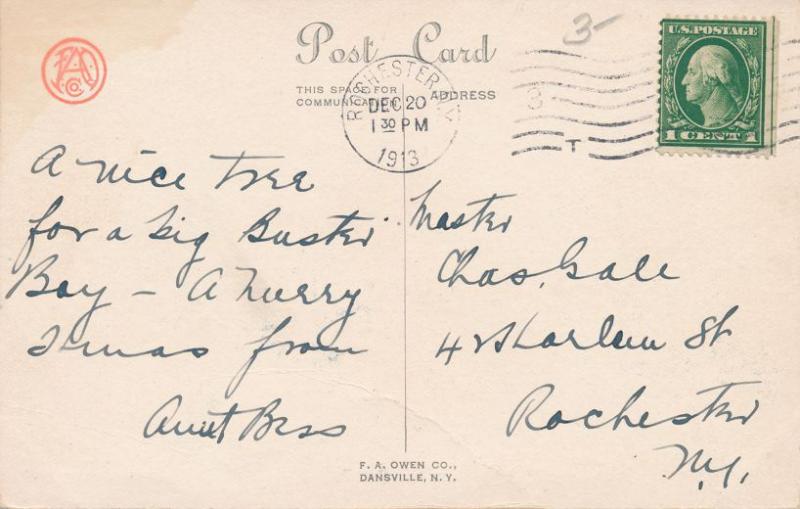 Post Card
THIS SPACE FOR
COMMUNICATION
ADDRESS
3-
ROCHESTER, N.Y.
DEC 20
1 30 PM
1913
3
T
U.S. POSTAGE
1 CENT 1
F.A.O. Co.
A nice tree
for a big Buster
Boy - A Merry
Xmas from
Aunt Bess
Master
Chas. Gale
Harlem St
Rochester
N.Y.
F. A. OWEN CO.,
DANSVILLE, N. Y.